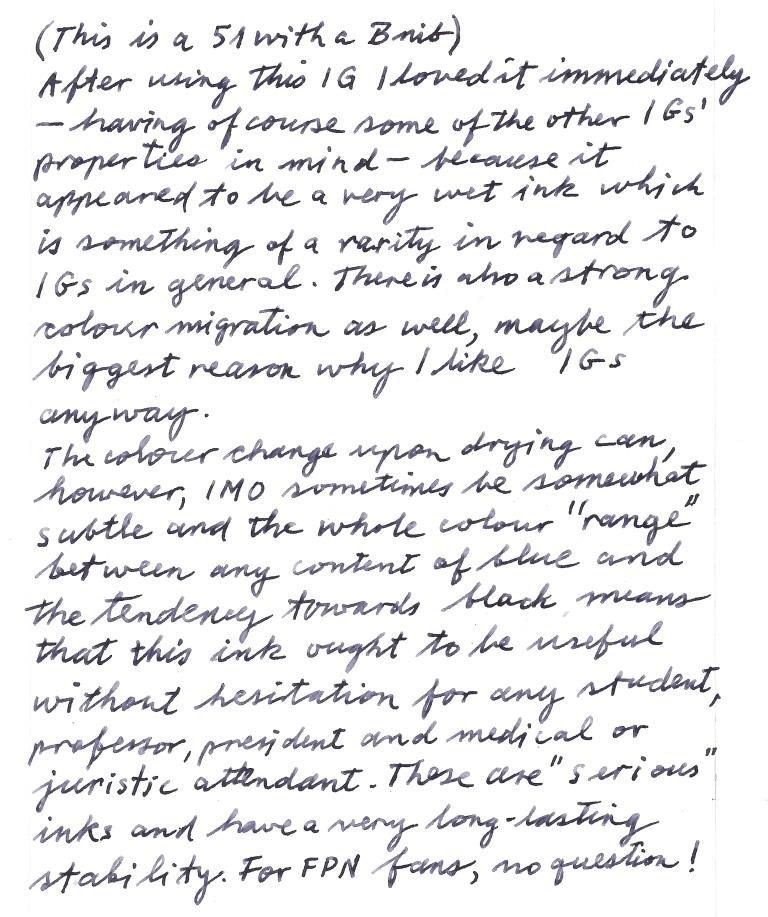 (This is a 51 with a B nib)
After using this IG I loved it immediately
– having of course some of the other IGs'
properties in mind – because it
appeared to be a very wet ink which
is something of a rarity in regard to
IGs in general. There is also a strong
colour migration as well, maybe the
biggest reason why I like IGs
anyway.
The colour change upon drying can,
however, IMO sometimes be somewhat
subtle and the whole colour "range"
between any content of blue and
the tendency towards black means
that this ink ought to be useful
without hesitation for any student,
professor, president and medical or
juristic attendant. These are "serious"
inks and have a very long-lasting
stability. For FPN fans, no question!